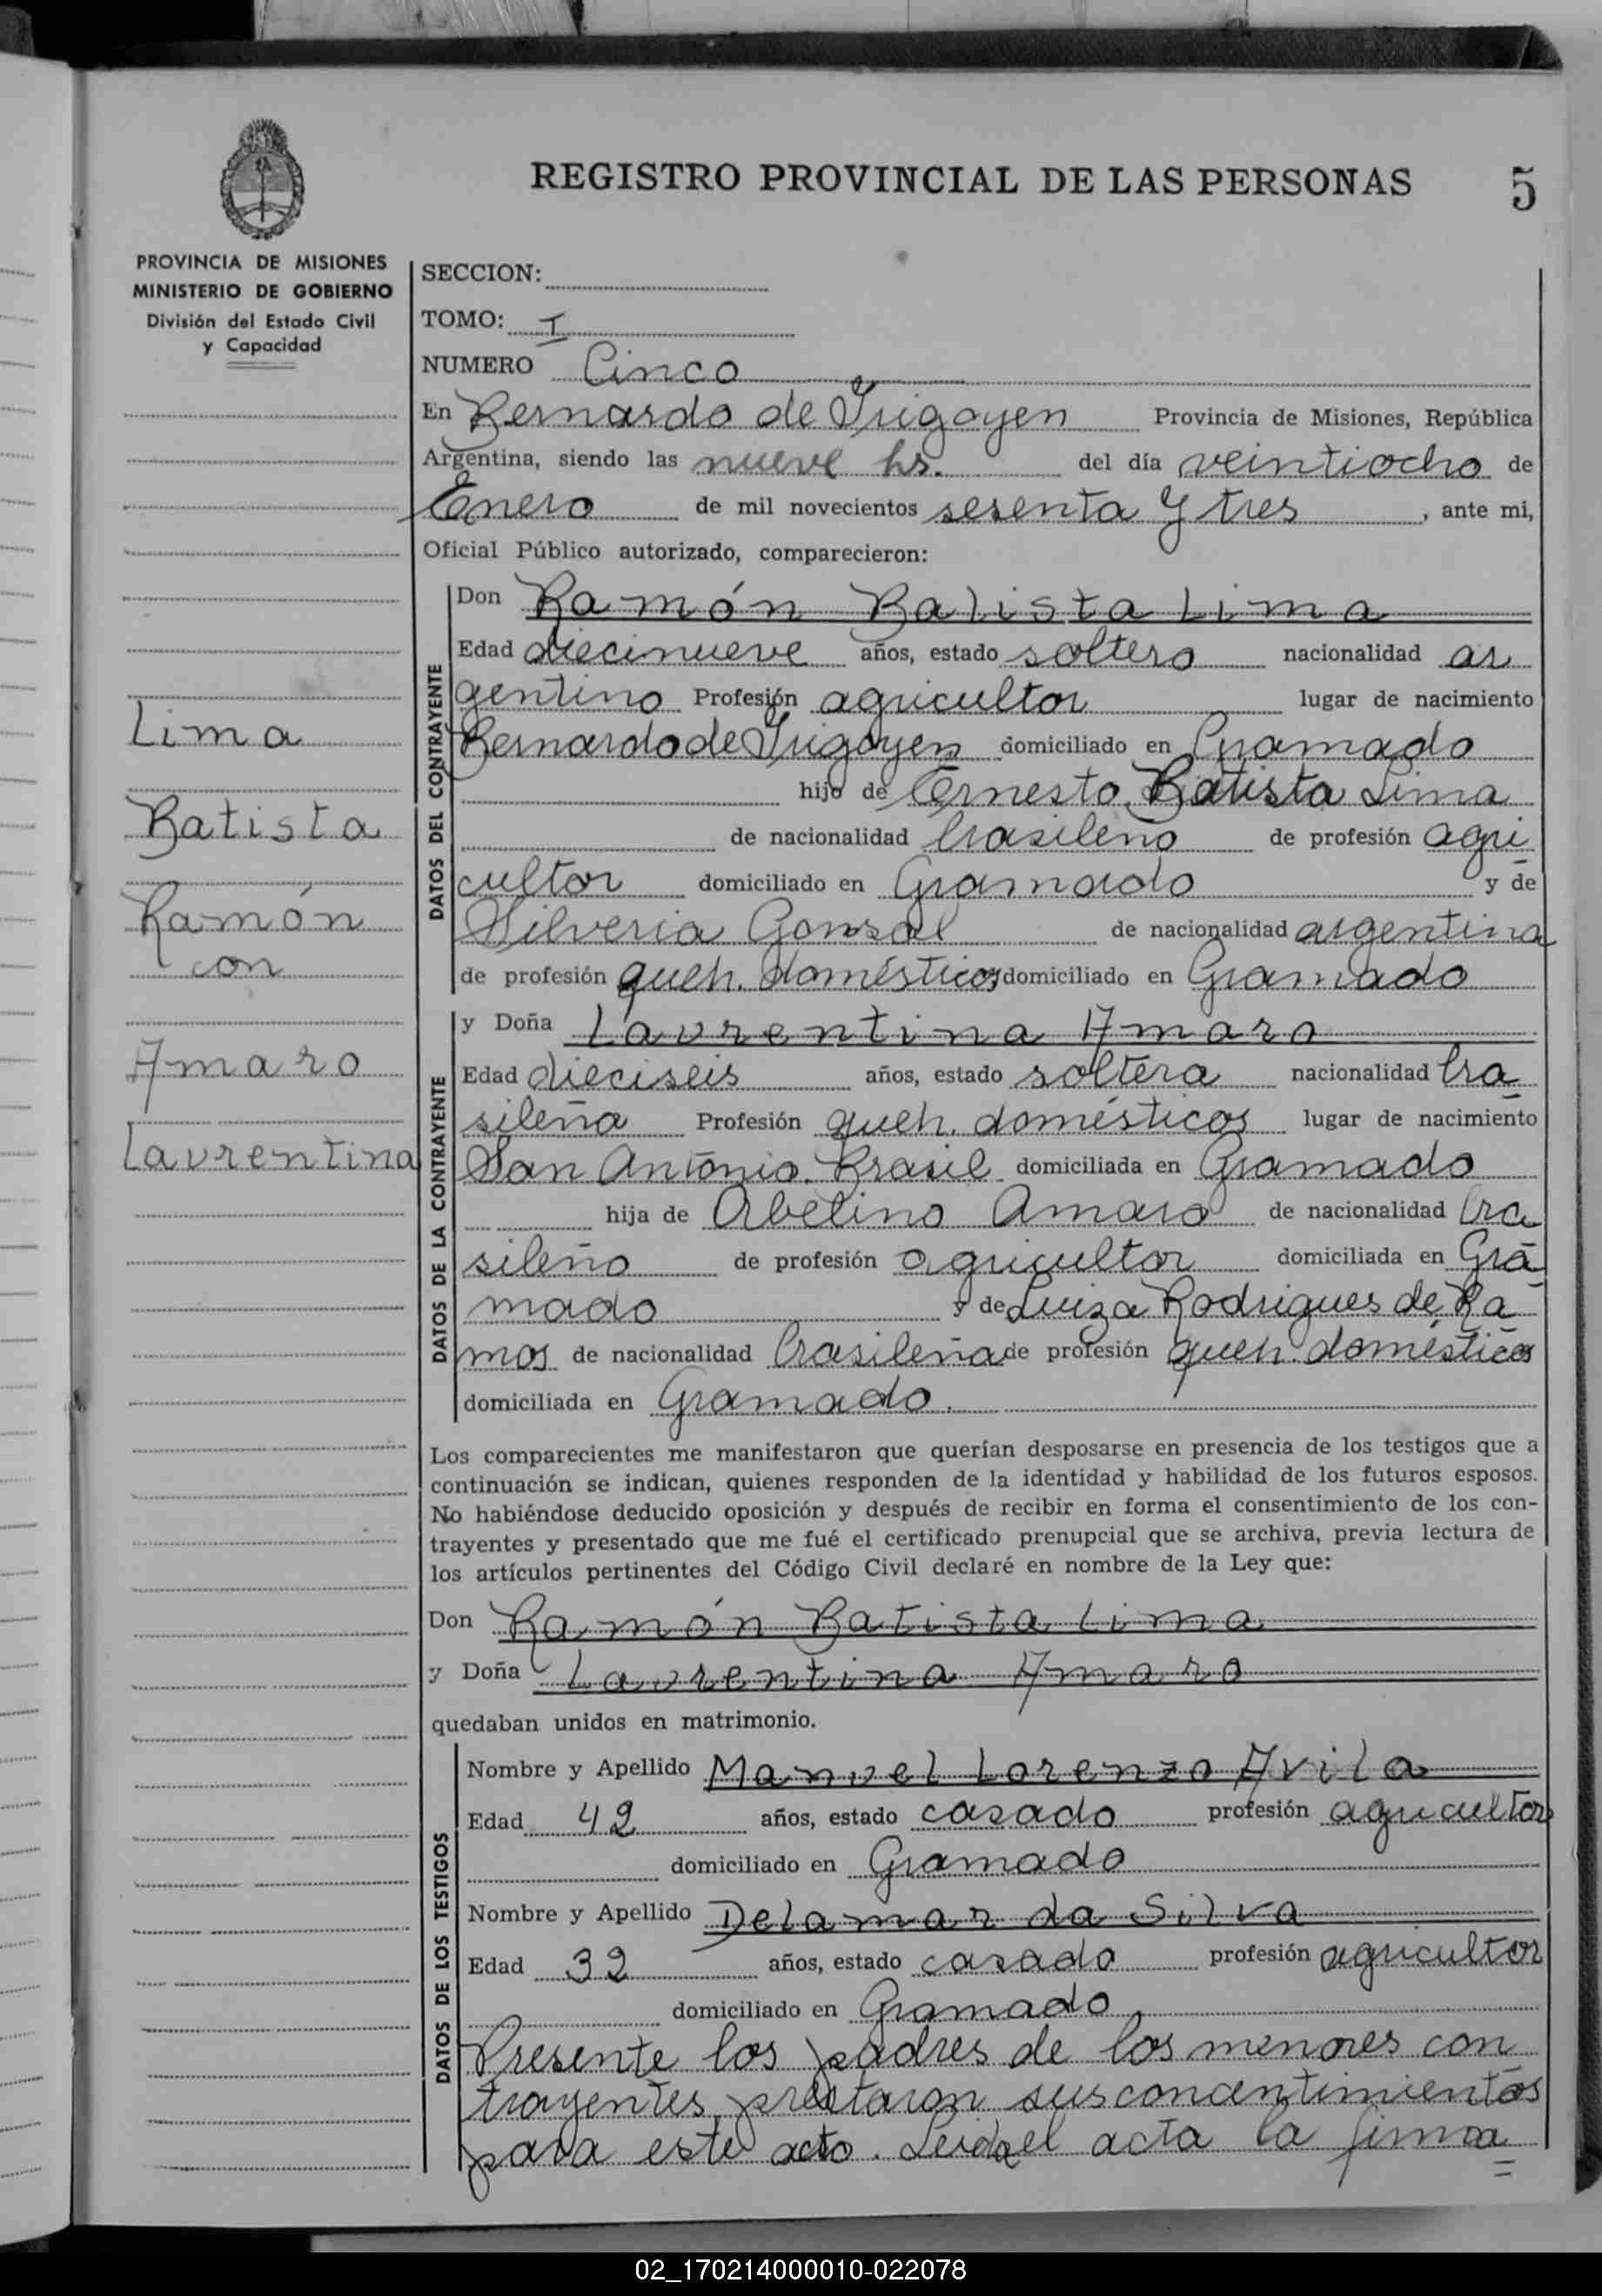 REGISTRO PROVINCIAL DE LAS PERSONAS 5
PROVINCIA DE MISIONES
MINISTERIO DE GOBIERNO
División del Estado Civil
y Capacidad
Lima
Batista
Ramón
con
Amaro
Laurentina
SECCION:
TOMO: I
NUMERO Cinco
En Bernardo de Irigoyen Provincia de Misiones, República
Argentina, siendo las nueve hs. del día veintiocho de
Enero de mil novecientos sesenta y tres, ante mi,
Oficial Público autorizado, comparecieron:
DATOS DEL CONTRAYENTE
Don Ramón Batista Lima
Edad diecinueve años, estado soltero nacionalidad ar
gentino Profesión agricultor lugar de nacimiento
Bernardo de Irigoyen domiciliado en Gramado
hijo de Ernesto Batista Lima
de nacionalidad brasileno de profesión agri
cultor domiciliado en Gramado y de
Silveria Gonsal de nacionalidad argentina
de profesión queh. domésticos domiciliado en Gramado
DATOS DE LA CONTRAYENTE
y Doña Laurentina Amaro
Edad dieciseis años, estado soltera nacionalidad bra
sileña Profesión queh. domésticos lugar de nacimiento
San Antonio. Brasil domiciliada en Gramado
hija de Abelino Amaro de nacionalidad bra
sileño de profesión agricultor domiciliada en Gra
mado y de Luiza Rodrigues de Ra
mos de nacionalidad brasileña de profesión queh. domésticos
domiciliada en Gramado.
Los comparecientes me manifestaron que querían desposarse en presencia de los testigos que a
continuación se indican, quienes responden de la identidad y habilidad de los futuros esposos.
No habiéndose deducido oposición y después de recibir en forma el consentimiento de los con-
trayentes y presentado que me fué el certificado prenupcial que se archiva, previa lectura de
los artículos pertinentes del Código Civil declaré en nombre de la Ley que:
Don Ramón Batista Lima
y Doña Laurentina Amaro
quedaban unidos en matrimonio.
DATOS DE LOS TESTIGOS
Nombre y Apellido Manuel Lorenzo Avila
Edad 42 años, estado casado profesión agricultor
domiciliado en Gramado
Nombre y Apellido Delamar da Silva
Edad 32 años, estado casado profesión agricultor
domiciliado en Gramado.
Presente los padres de los menores con
trayentes, prestaron sus concentimientos
para este acto. Leida el acta la firma
02_170214000010-022078